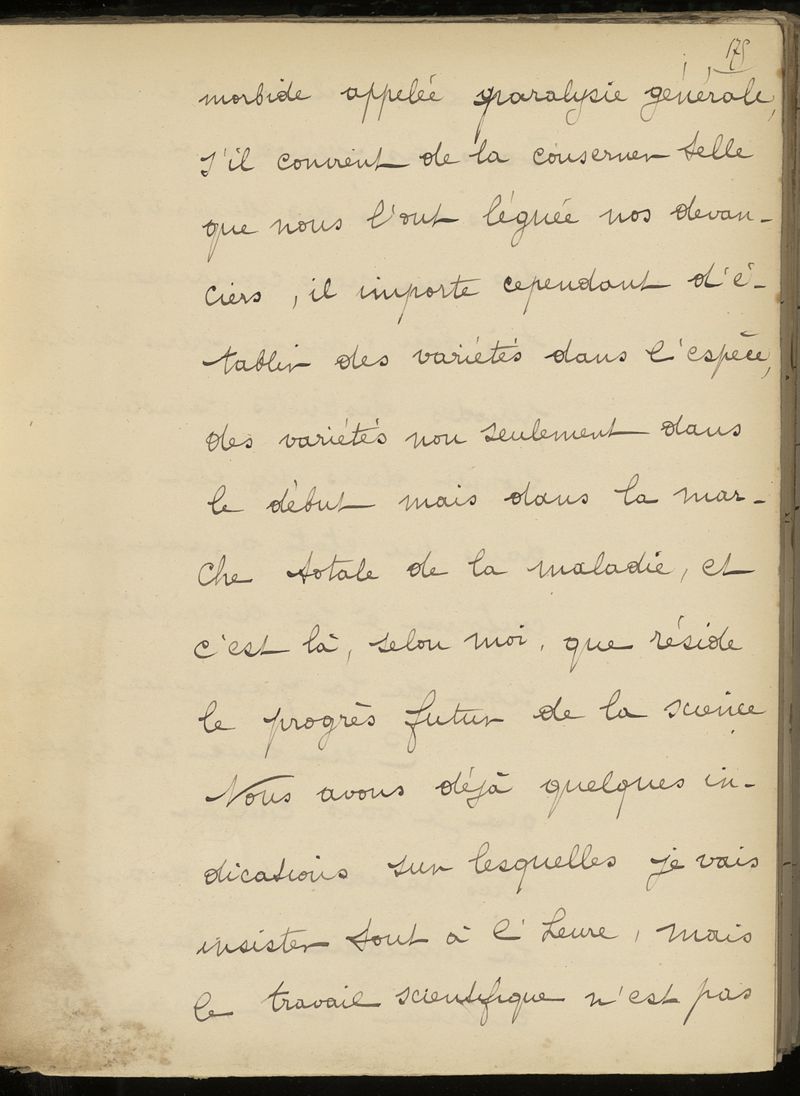 175
morbide appelée paralysie générale,
s'il convient de la conserver telle
que nous l'ont léguée nos devan-
ciers, il importe cependant d'é-
tablir des variétés dans l'espèce,
des variétés non seulement dans
le début mais dans la mar-
che totale de la maladie, et
c'est là, selon moi, que réside
le progrès futur de la science
Nous avons déjà quelques in-
dications sur lesquelles je vais
insister tout à l'heure, mais
le travail scientifique n'est pas